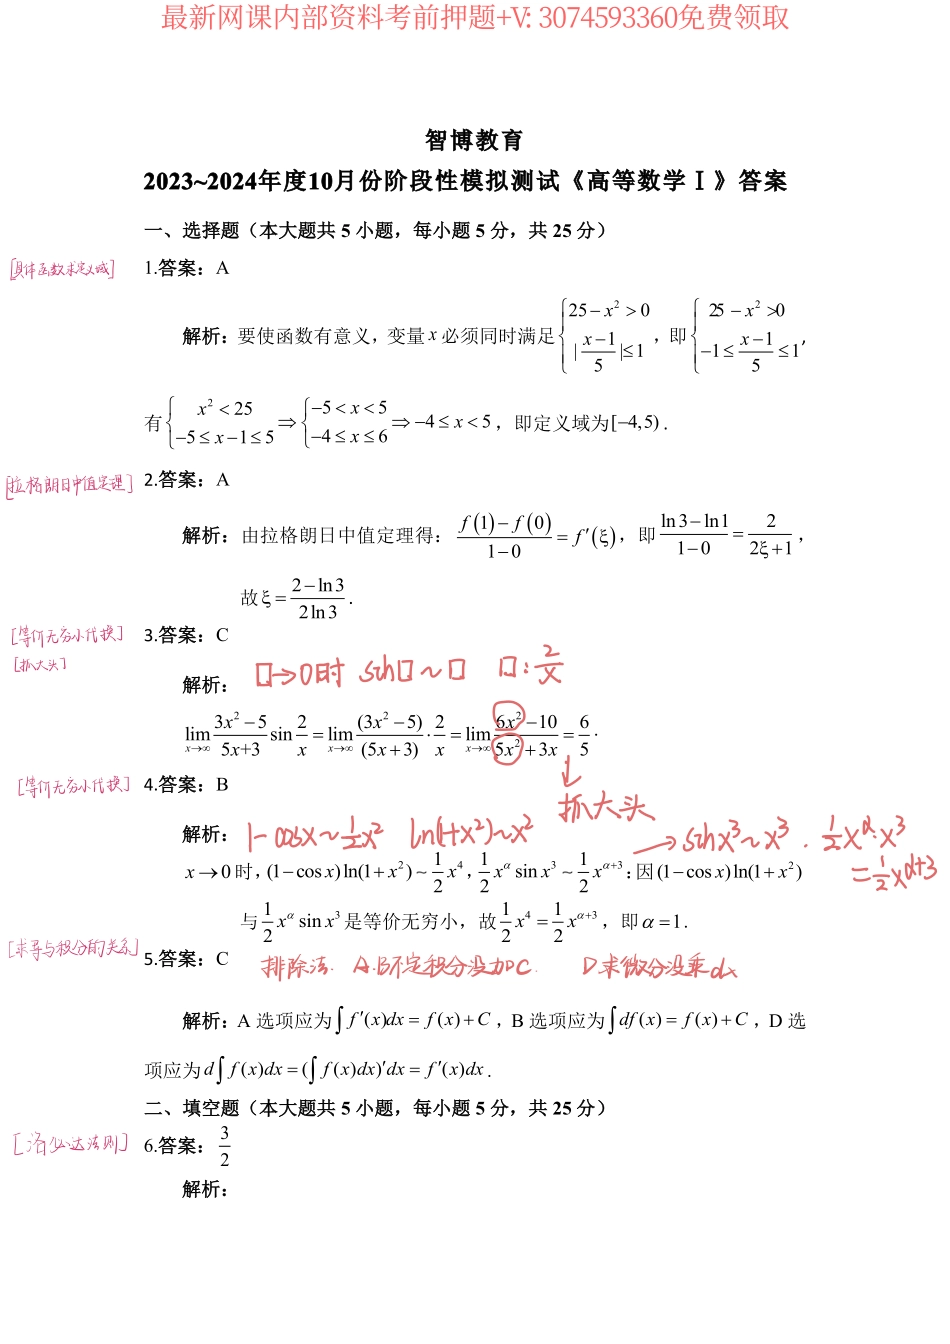 最新网课内部资料考前押题+V: 3074593360免费领取
智博教育
2023~2024年度10月份阶段性模拟测试《高等数学Ⅰ》答案
一、选择题（本大题共 5 小题，每小题 5 分，共 25 分）
[具体函数求定义域] 1.答案：A
解析：要使函数有意义，变量 x 必须同时满足 { 25−x²>0, |(x−1)/5|≤1 ，即 { 25−x²>0, −1≤(x−1)/5≤1 ，
有 { x²<25, −5≤x−1≤5 ⇒ { −5<x<5, −4≤x≤6 ⇒ −4≤x<5，即定义域为[−4,5) .
[拉格朗日中值定理] 2.答案：A
解析：由拉格朗日中值定理得：(f(1)−f(0))/(1−0) = f′(ξ)，即 (ln3−ln1)/(1−0) = 2/(2ξ+1)，
故 ξ = (2−ln3)/(2ln3) .
[等价无穷小代换] 3.答案：C
[抓大头]
解析： □→0时 sin□～□ □:2/x
lim x→∞ (3x²−5)/(5x+3) sin 2/x = lim x→∞ (3x²−5)/(5x+3) · 2/x = lim x→∞ (6x²−10)/(5x²+3x) = 6/5 .
↓
抓大头
[等价无穷小代换] 4.答案：B
解析： 1−cosx～½x² ln(1+x²)～x² → sinx³～x³ . ½x^α·x³
=½x^(α+3)
x→0 时，(1−cos x)ln(1+x²) ~ ½x⁴，½x^α sin x³ ~ ½x^(α+3)；因(1−cos x)ln(1+x²)
与 ½x^α sin x³ 是等价无穷小，故 ½x⁴ = ½x^(α+3)，即 α=1 .
[求导与积分的关系] 5.答案：C 排除法. A.B不定积分没加C. D求微分没乘dx
解析：A 选项应为 ∫f′(x)dx = f(x)+C，B 选项应为 ∫df(x) = f(x)+C，D 选
项应为 d∫f(x)dx = (∫f(x)dx)′dx = f′(x)dx .
二、填空题（本大题共 5 小题，每小题 5 分，共 25 分）
[洛必达法则] 6.答案：3/2
解析：